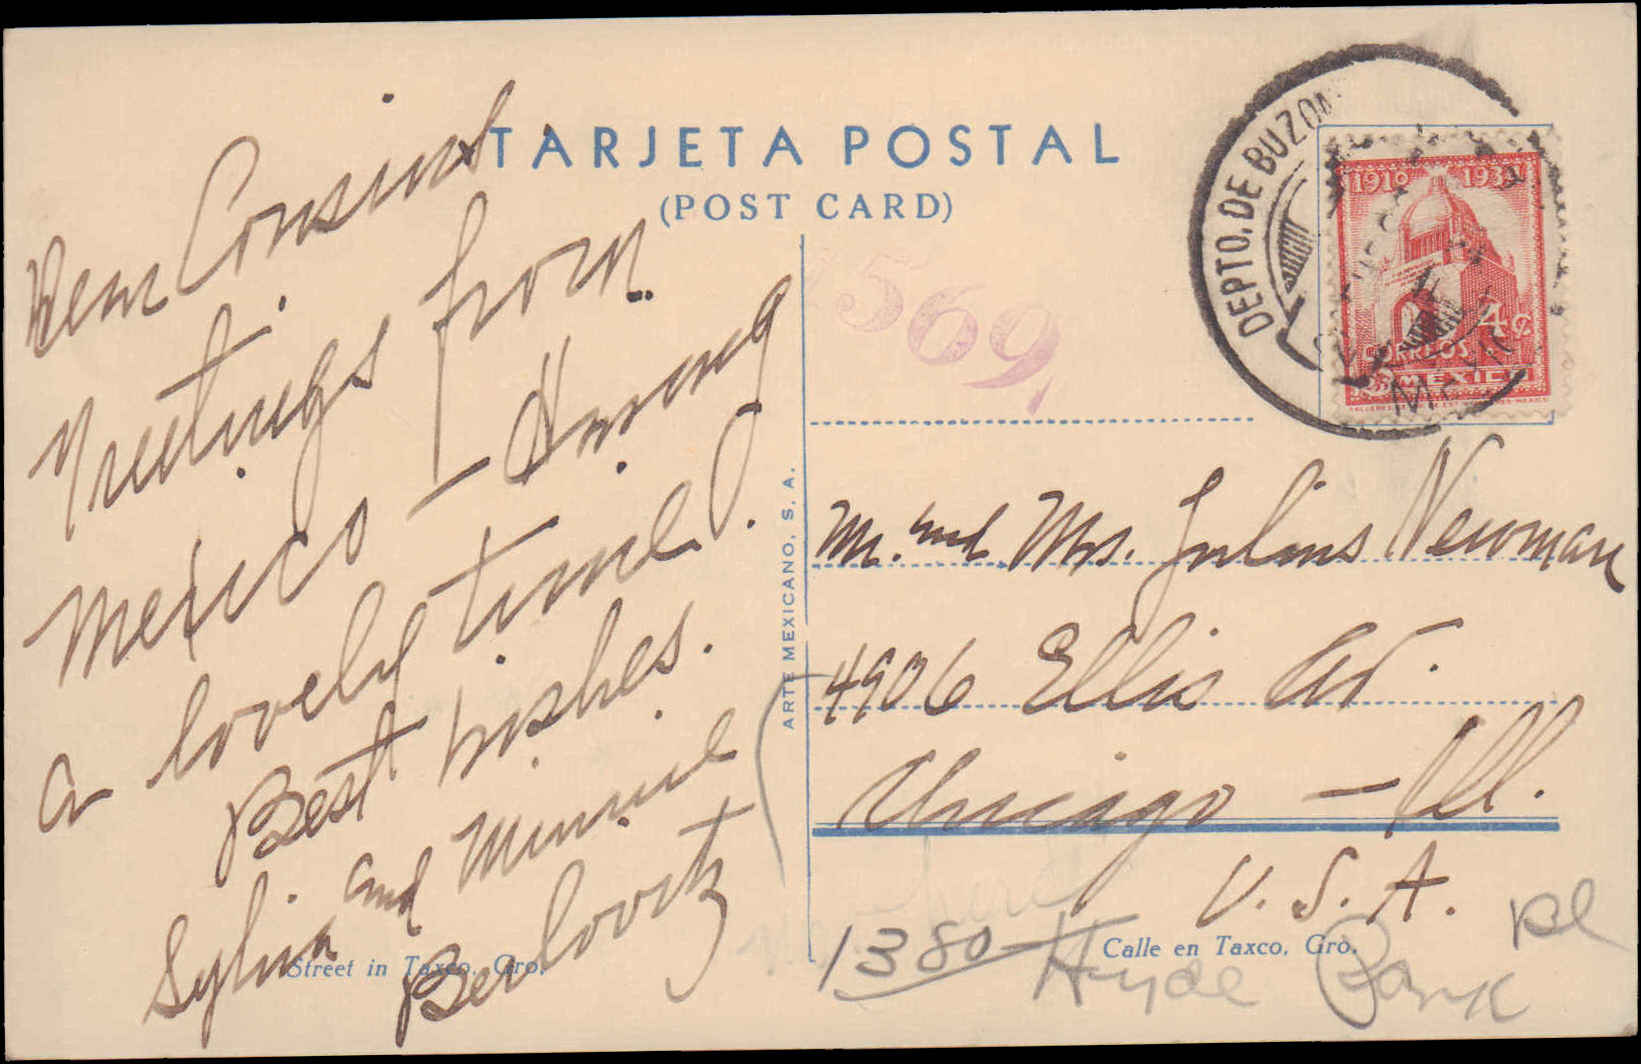 TARJETA POSTAL
(POST CARD)
Dear Cousins
Greetings from
Mexico - Having
a lovely time.
Best wishes.
Sylvia and Minnie
Berlovitz
Street in Taxco, Gro.
ARTE MEXICANO, S. A.
569
DEPTO. DE BUZON
1910 1935
4¢
CORREOS
MEXICO
Mr. and Mrs. Julius Newman
4906 Ellis Av.
Chicago - Ill.
U. S. A.
Calle en Taxco, Gro.
1380 Hyde Park Bl